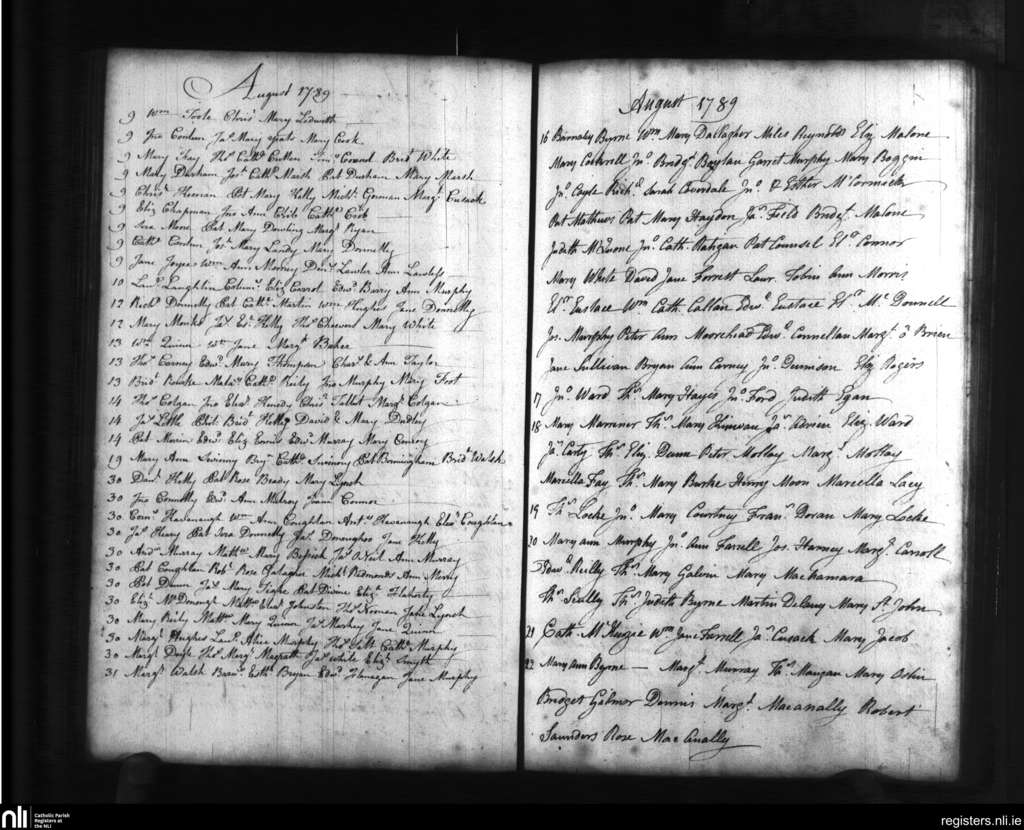 August 1789
9 Wm Toole Chrisr Mary Ledwith
9 Jno Conlon Jas Mary Mary Cook
9 Mary Fay Thos Cathe Cullen Conl Bridt White
9 Mary Durham Jas Cathe Marsh Pat Durham Mary Marsh
9 Chrisr Keenan Pat Mary Kelly Michl Gorman Margt Cusack
9 Eliz Chapman Jno Ann Cathe Cook
9 Pat Mary Dowling Margt Ryan
9 Cathe Conlon Jas Mary Landy Mary Donnelly
9 Jane Joyce Wm Ann Morney Danl Lawler Ann Lawless
10 Laughlin Eliz Carrol Edwd Barry Ann Murphy
12 Richd Donnelly Pat Cathe Martin Wm Hughes Jane Donnelly
12 Mary Monks Jas Kelly Thos Cheevers Mary White
13 Wm Quinn Wm Jane Margt Baker
13 Thos Carney Edwd Mary Thompson Chars & Ann Taylor
13 Bridt Rourke Cathe Reily Jno Murphy Mary Foot
14 Thos Colgan Jno Elenr Chrisr Talbot Margt Colgan
14 Jas Little Bridt Kelly David & Mary Dudley
14 Pat Edwd Eliz Ennis Edwd Murray Mary Conroy
19 Mary Ann Sweeny Bry Cathe Sweeny Pat Bermingham Bridt Walsh
30 Danl Kelly Pat Rose Brady Mary Lynch
30 Jno Connolly Ann Mulroy Connor
30 Kavanaugh Wm Ann Coughlan Anty Kavanaugh Elenr Coughlan
30 Jas Henry Pat Donnelly Jas Donoughoe Jane Kelly
30 Andw Murray Matthw Mary Jas O Neil Ann Murray
30 Pat Coughlan Robt Rose Galagher Michl Redmonds Ann
30 Pat Dunn Jas Mary Tighe Pat Divine Eliz Flaherty
30 Eliz McDonough Matthw Elenr Johnston Thos Jane Lynch
30 Mary Reily Matthw Mary Quinn Jas Jane Quinn
30 Margt Hughes Alice Murphy Thos Salt Cathe Murphy
30 Margt Doyle Thos Margt Magrath Jas White Eliz Smyth
31 Margt Walsh Esthr Bryan Edwd Flanagan Jane Murphy
August 1789
16 Barnaby Byrne Wm Mary Dallagher Miles Reynolds Eliz Malone
Mary Jno Bridgt Boylan Garret Murphy Mary Boggin
Jno Coyle Richd Sarah Coverdale Jno & Esther McCormick
Pat Mathews Pat Mary Haydon Jas Field Bridgt Malone
Judith Jno Cath Ratigan Pat Counsel Connor
Mary White David Jane Forrest Laur Tobin Ann Morris
Eustace Wm Cath Callan Edwd Eustace Mc Donnell
Jos Murphy Peter Ann Moorehead Edwd Connellan Margt O Brien
Jane Sullivan Bryan Ann Carney Jno Dennison Eliz Rogers
17 Jno Ward Thos Mary Hayes Jno Ford Judith Egan
18 Mary Marmner Thos Mary Jas Eliz Ward
Jas Carty Thos Eliz Dunn Peter Molloy Margt Molloy
Marcella Fay Thos Mary Burke Henry Moon Marcella Lacy
19 Thos Locke Jno Mary Courtney Frans Doran Mary Locke
20 Mary ann Murphy Jno Ann Farrell Jos Harney Margt Carroll
Edwd Reilly Thos Mary Galvin Mary Mackamara
Thos Scully Thos Judith Byrne Martin Delany Mary St John
21 Cath McKenzie Wm Jane Farrell Jas Cusack Mary Jacob
22 Mary ann Byrne — Margt Murray Thos Mangan Mary
Bridget Gilmor Dennis Margt Macanally Robert
Saunders Rose Mac Anally
nli
Catholic Parish
Registers at
the NLI
registers.nli.ie